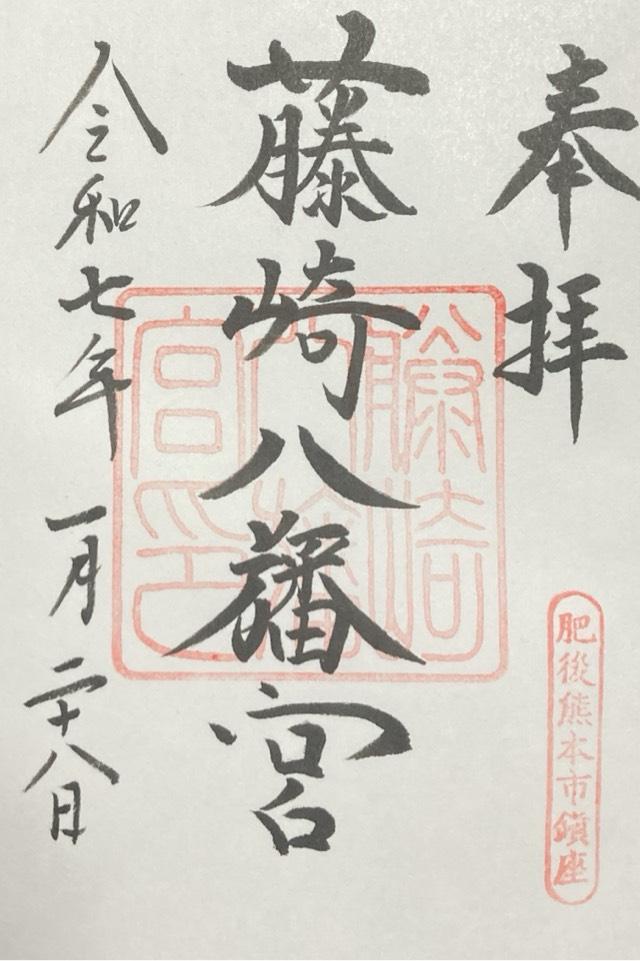 奉拝
肥後熊本市鎮座
藤崎八旛宮
藤崎
八旛
宮印
令和七年一月二十八日